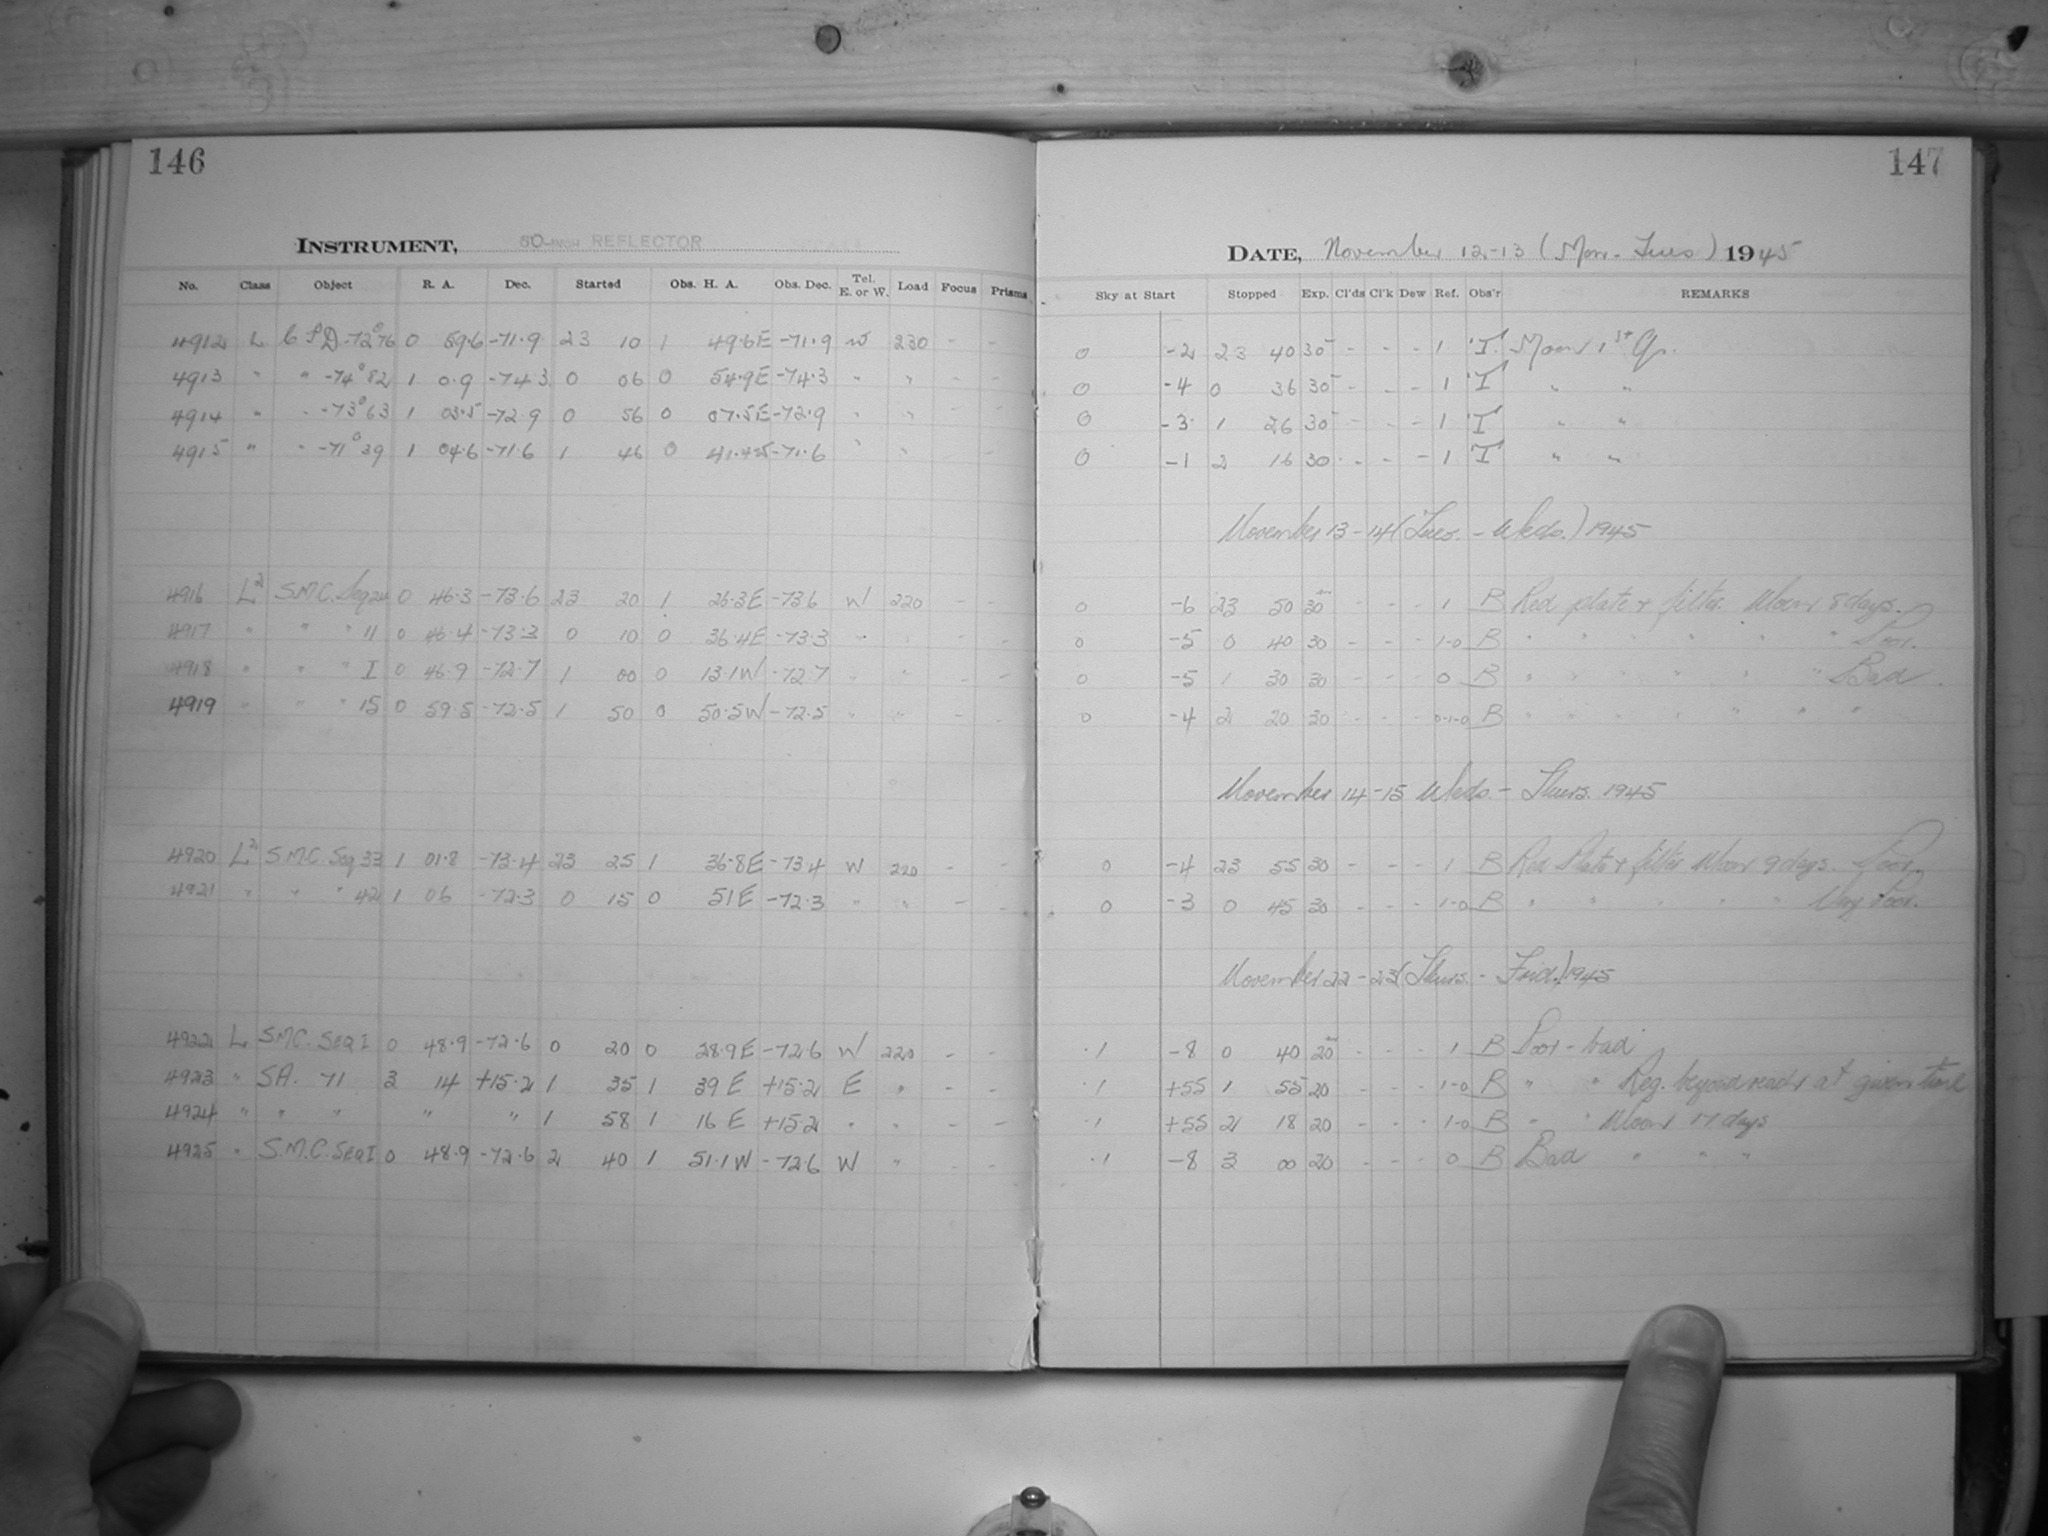 146
INSTRUMENT, 60-INCH REFLECTOR
No. Class Object R. A. Dec. Started Obs. H. A. Obs. Dec. Tel. E. or W. Load Focus Prisms
4912 L C P D -72°76 0 59.6 -71.9 23 10 1 49.6E -71.9 W 230 - -
4913 " " -74°82 1 0.9 -74.3 0 06 0 54.9E -74.3 " " - -
4914 " " -73°63 1 03.5 -72.9 0 56 0 07.5E -72.9 " " - -
4915 " " -71°39 1 04.6 -71.6 1 46 0 41.4W -71.6 " " - -
4916 L² S.M.C. Seq 0 46.3 -73.6 23 20 1 26.3E -73.6 W 220 - -
4917 " " " 11 0 46.4 -73.3 0 10 0 36.4E -73.3 " " - -
4918 " " " I 0 46.9 -72.7 1 00 0 13.1W -72.7 " " - -
4919 " " " 15 0 59.5 -72.5 1 50 0 50.5W -72.5 " " - -
4920 L² S.M.C. Seq 33 1 01.8 -73.4 23 25 1 36.8E -73.4 W 220 - -
4921 " " " 42 1 06 -72.3 0 15 0 51E -72.3 " " - -
4922 L S.M.C. SEQ I 0 48.9 -72.6 0 20 0 28.9E -72.6 W 220 - -
4923 " SA. 71 3 14 +15.2 1 35 1 39 E +15.2 E " - -
4924 " " " " " 1 58 1 16 E +15.2 " " - -
4925 " S.M.C. SEQ I 0 48.9 -72.6 2 40 1 51.1W -72.6 W " - -
147
DATE, November 12-13 (Mon. - Tues) 1945
Sky at Start Stopped Exp. Cl'ds Cl'k Dew Ref. Obs'r REMARKS
0 -2 23 40 30 - - - 1 'T' Moon 1st Qr.
0 -4 0 36 30 - - - 1 'T' " "
0 -3 1 26 30 - - - 1 'T' " "
0 -1 2 16 30 - - - 1 'T' " "
November 13-14 (Tues. - Weds.) 1945
0 -6 23 50 30 - - - 1 B Red plate + filter. Moon 8 days.
0 -5 0 40 30 - - - 1-0 B " " " " " " Poor.
0 -5 1 30 30 - - - 0 B " " " " " " Bad.
0 -4 2 20 30 - - - 0-1-0 B " " " " " " "
November 14-15 Weds. - Thurs. 1945
0 -4 23 55 30 - - - 1 B Red Plate + filter Moon 9 days. Poor
0 -3 0 45 30 - - - 1-0 B " " " " " Very Poor.
November 22-23 (Thurs. - Frid.) 1945
.1 -8 0 40 20 - - - 1 B Poor - bad
.1 +55 1 55 20 - - - 1-0 B " " Reg. beyond reach at given time
.1 +55 2 18 20 - - - 1-0 B " " Moon 17 days
.1 -8 3 00 20 - - - 0 B Bad " " "